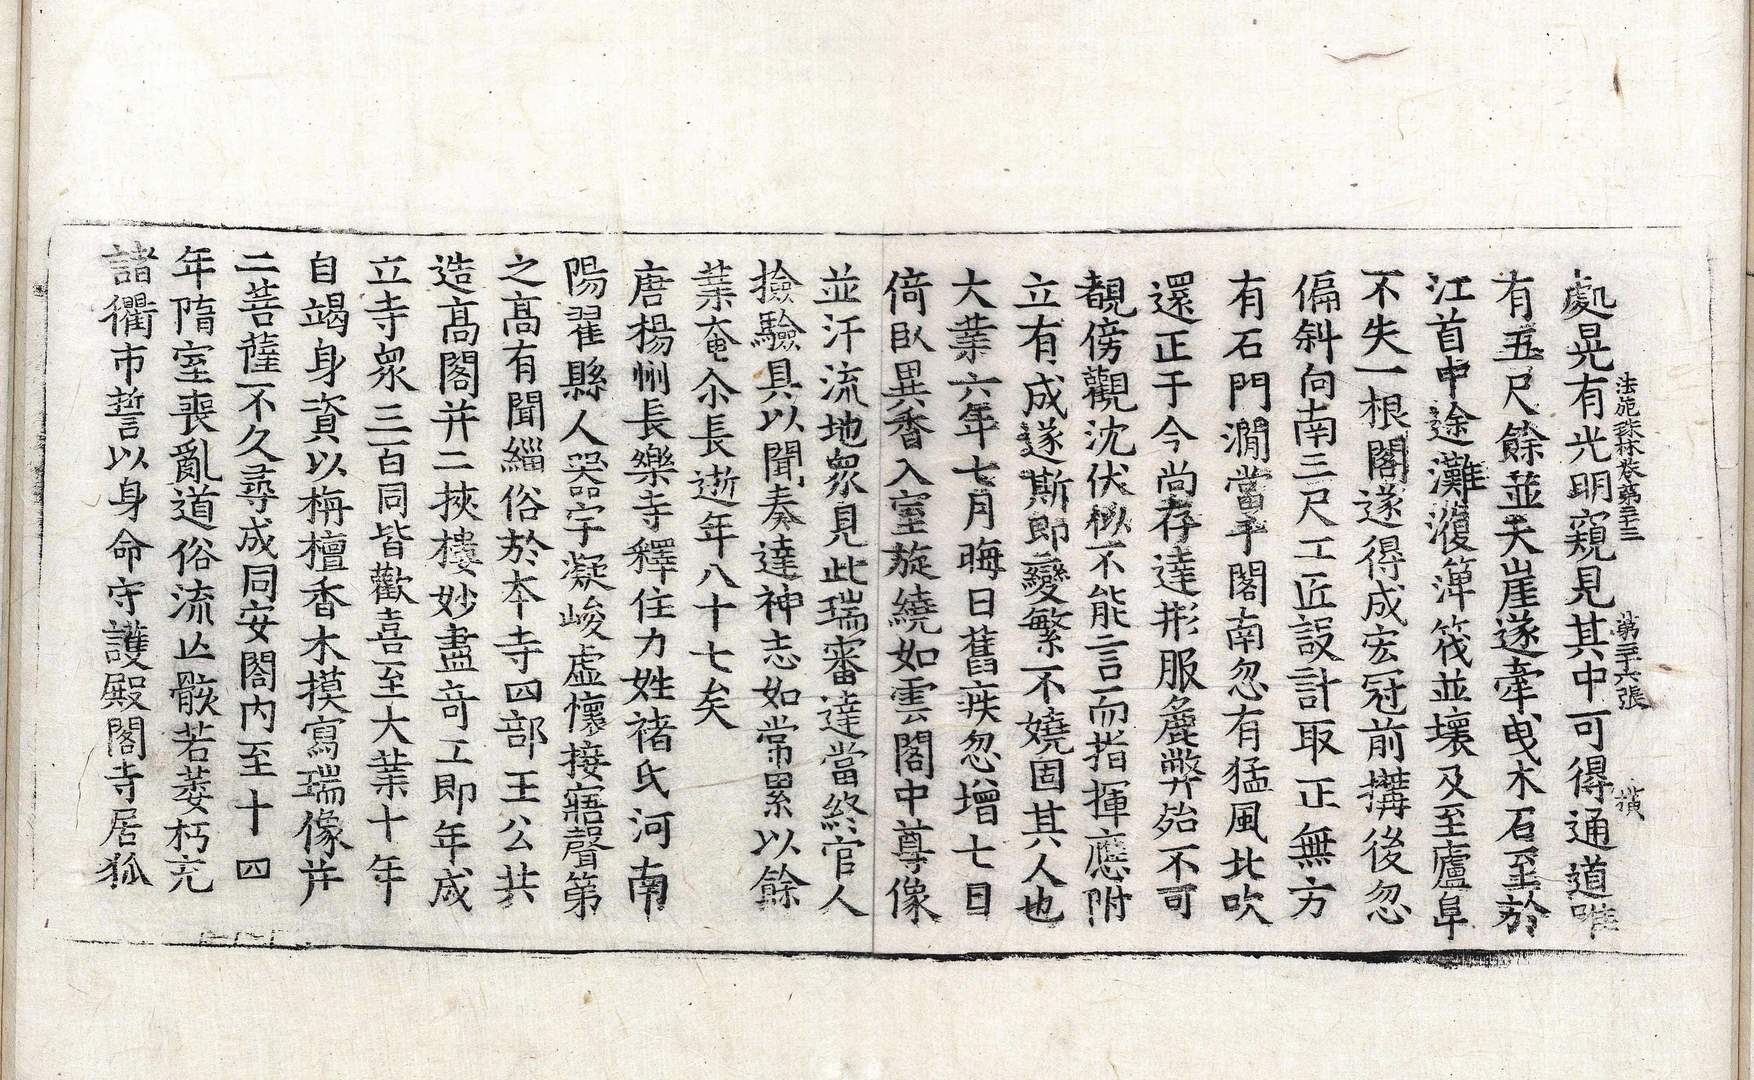 法苑珠林卷第三十三　第三十六張　横
處晃有光明窺見其中可得通道唯
有五尺餘並天崖遂牽曳木石至於
江首中途灘澓簰筏並壞及至廬阜
不失一根閣遂得成宏冠前搆後忽
偏斜向南三尺工匠設計取正無方
有石門澗當乎閣南忽有猛風北吹
還正于今尚存達形服麁弊殆不可
覩傍觀沈伏似不能言而指揮應附
立有成遂斯即變繁不嬈固其人也
大業六年七月晦日舊疾忽增七日
倚臥異香入室旋繞如雲閣中尊像
並汗流地衆見此瑞審達當終官人
撿驗具以聞奏達神志如常累以餘
業奄尒長逝年八十七矣
唐楊州長樂寺釋住力姓褚氏河南
陽翟縣人器宇凝峻虛懷接寤聲第
之高有聞緇俗於本寺四部王公共
造高閣并二挾樓妙盡奇工即年成
立寺衆三百同皆歡喜至大業十年
自竭身資以栴檀香木摸寫瑞像并
二菩薩不久尋成同安閣內至十四
年隋室喪亂道俗流亾骸若萎朽充
諸衢市誓以身命守護殿閣寺居狐